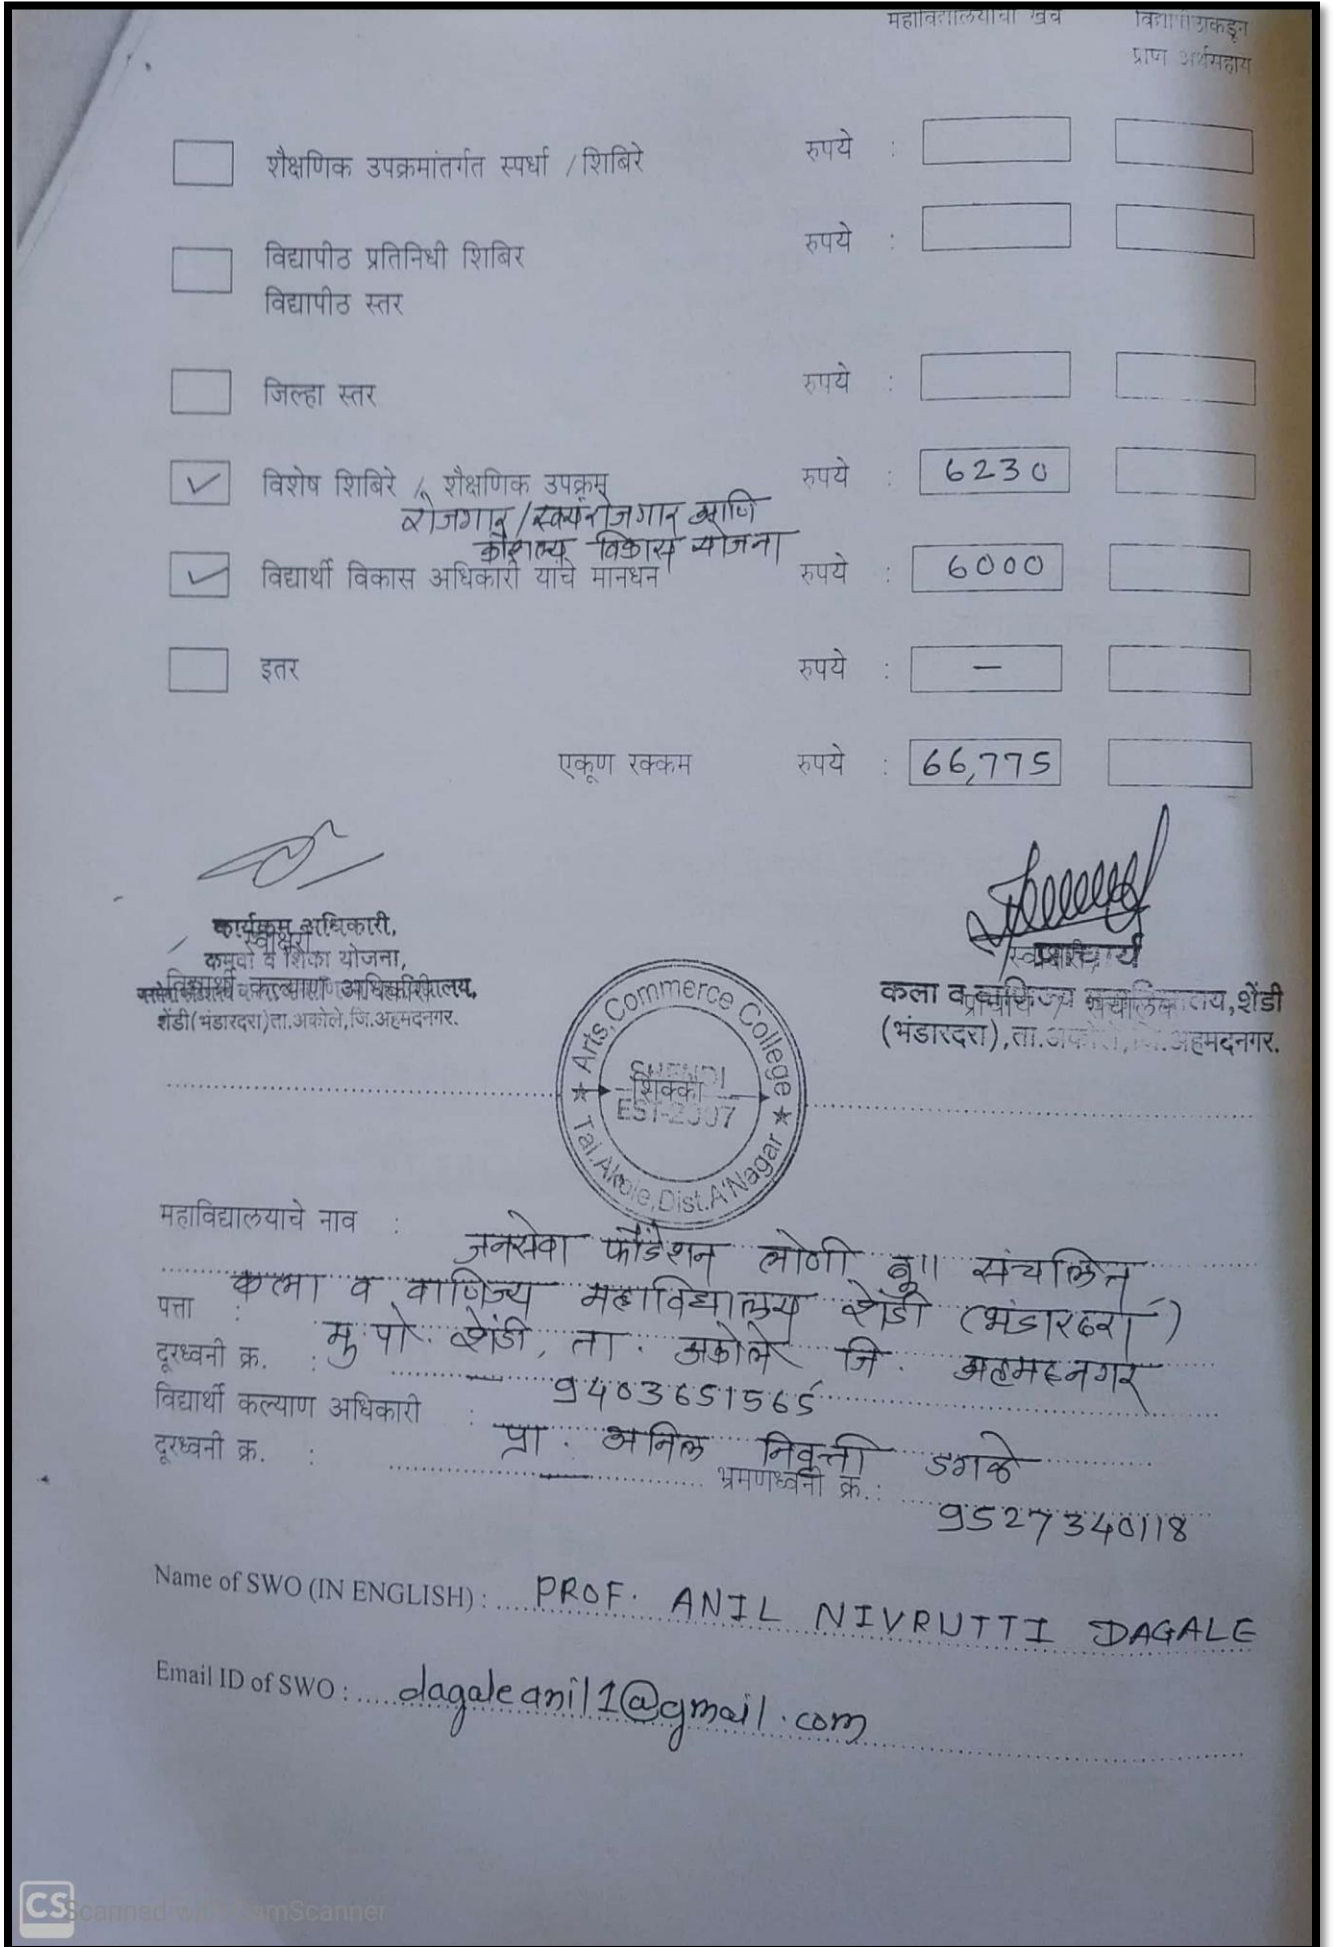 महाविद्यालयाचा खर्च विद्यापीठाकडून
प्राप्त अर्थसहाय
शैक्षणिक उपक्रमांतर्गत स्पर्धा / शिबिरे रुपये :
विद्यापीठ प्रतिनिधी शिबिर रुपये :
विद्यापीठ स्तर
जिल्हा स्तर रुपये :
✓ विशेष शिबिरे / शैक्षणिक उपक्रम रुपये : 6230
रोजगार / स्वयंरोजगार आणि
कौशल्य विकास योजना
✓ विद्यार्थी विकास अधिकारी यांचे मानधन रुपये : 6000
इतर रुपये : —
एकूण रक्कम रुपये : 66,775
कार्यक्रम अधिकारी,
स्वाक्षरी
कमवा व शिका योजना,
विद्यार्थी कल्याण अधिकारी
शेंडी(भंडारदरा)ता.अकोले,जि.अहमदनगर.
प्राचार्य
कला व वाणिज्य महाविद्यालय, शेंडी
(भंडारदरा), ता.अकोले, जि.अहमदनगर.
Arts, Commerce College
SHENDI
शिक्का
EST-2007
Tal. Akole, Dist. A'Nagar
महाविद्यालयाचे नाव : जनसेवा फौंडेशन लोणी बु॥ संचलित
कला व वाणिज्य महाविद्यालय शेंडी (भंडारदरा)
पत्ता : मु. पो. शेंडी, ता. अकोले जि. अहमदनगर
दूरध्वनी क्र. : 9403651565
विद्यार्थी कल्याण अधिकारी : प्रा. अनिल निवृत्ती डगळे
दूरध्वनी क्र. : — भ्रमणध्वनी क्र.: 9527340118
Name of SWO (IN ENGLISH) : PROF. ANIL NIVRUTTI DAGALE
Email ID of SWO : dagaleanil1@gmail.com
CS Scanned with CamScanner